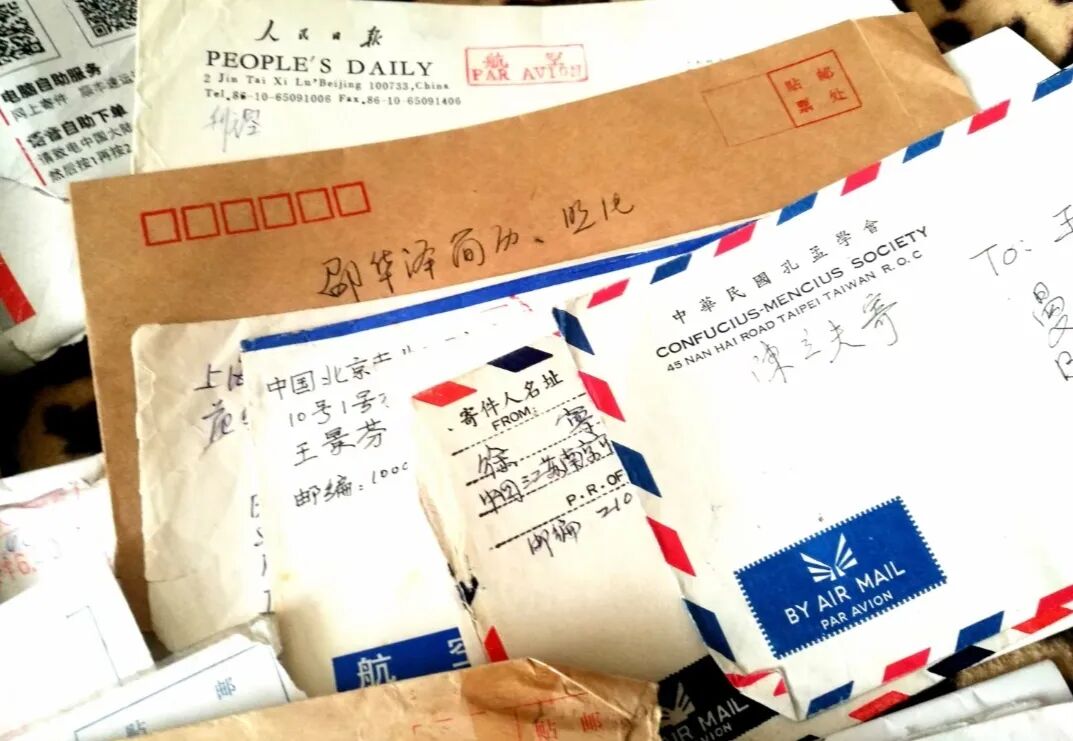 电脑自助服务
网上寄件
语音自助下单
请致电中国大陆
然后按1再按2
人民日报
PEOPLE'S DAILY
2 Jin Tai Xi Lu*Beijing 100733,China
Tel,86-10-65091006 Fax,86-10-65091406
航空
PAR AVION
邮票
贴处
邵华泽简历、照片
中華民國孔孟學會
CONFUCIUS-MENCIUS SOCIETY
45 NAN HAI ROAD TAIPEI TAIWAN R.O.C
陳立夫寄
To: 王
BY AIR MAIL
PAR AVION
上海
中国北京
10号1号
王景芬
邮编:100
航空
寄件人名址
FROM:
徐寧
中国江苏南京
P.R.OF
邮编 210
邮
贴
贴 邮
AIR MAIL
AVION